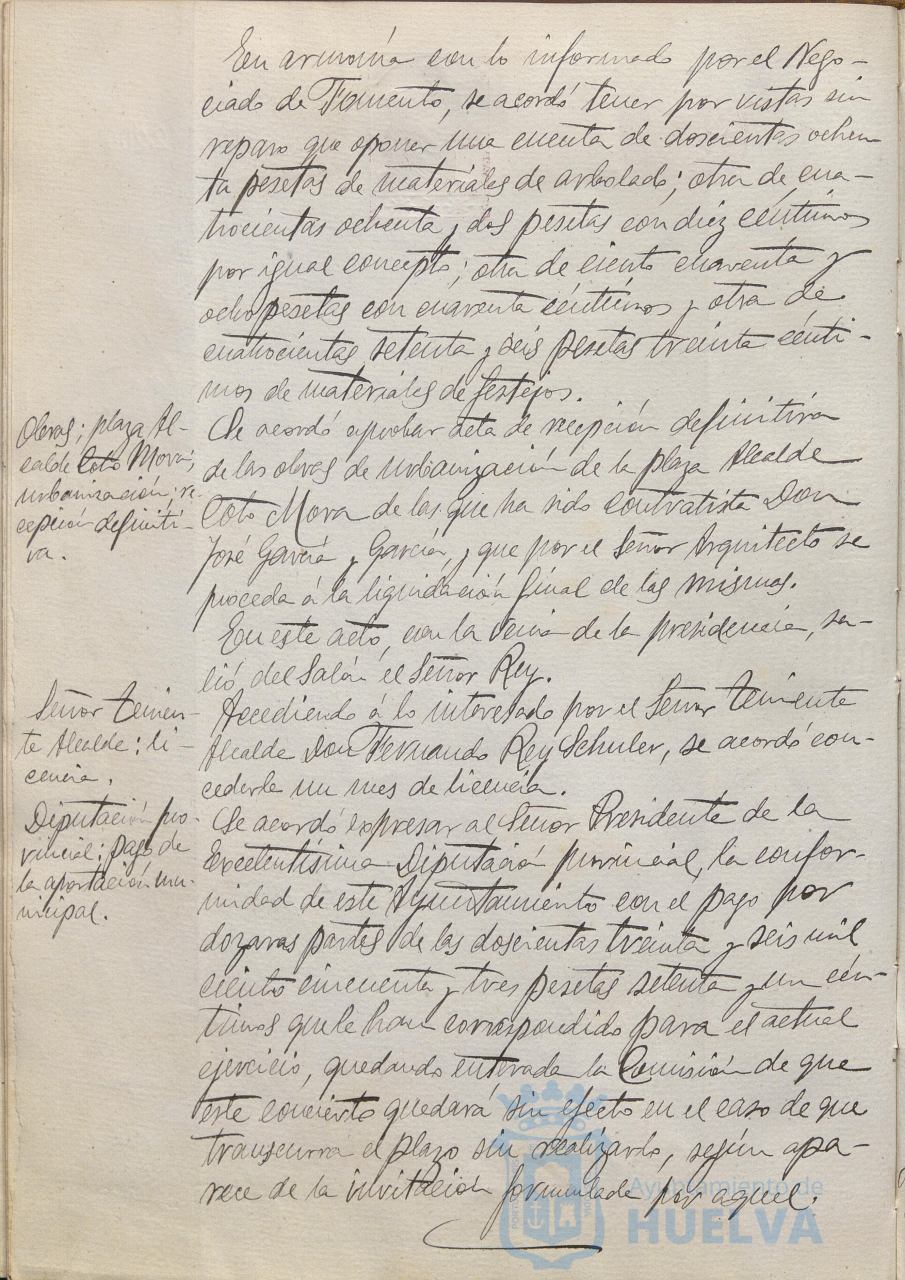 En armonía con lo informado por el Nego-
ciado de Fomento, se acordó tener por vistas sin
reparo que oponer una cuenta de doscientas ochen
ta pesetas de materiales de arbolado; otra de cua-
trocientas ochenta y dos pesetas con diez céntimos
por igual concepto; otra de ciento cuarenta y
ocho pesetas con cuarenta céntimos y otra de
cuatrocientas setenta y seis pesetas treinta cénti-
mos de materiales de festejos.
Obras; plaza Al-
calde Coto Mora;
urbanización; re-
cepción definiti-
va.
Se acordó aprobar acta de recepción definitiva
de las obras de urbanización de la plaza Alcalde
Coto Mora de las que ha sido contratista Don
José García y García, y que por el Señor Arquitecto se
proceda á la liquidación final de las mismas.
En este acto, con la venia de la presidencia, sa-
lió del Salón el Señor Rey.
Señor Tenien-
te Alcalde: li-
cencia.
Accediendo á lo interesado por el Señor Teniente
Alcalde Don Fernando Rey Schuler, se acordó con-
cederle un mes de licencia.
Diputación pro-
vincial; pago de
la aportación mu-
nicipal.
Se acordó expresar al Señor Presidente de la
Excelentísima Diputación provincial, la confor-
midad de este Ayuntamiento con el pago por
dozavas partes de las doscientas treinta y seis mil
ciento cincuenta y tres pesetas setenta y un cén-
timos que le han correspondido para el actual
ejercicio, quedando enterada la Comisión de que
este concierto quedará sin efecto en el caso de que
transcurra el plazo sin realizarlo, según apa-
rece de la invitación formulada por aquel.
Ayuntamiento de
HUELVA